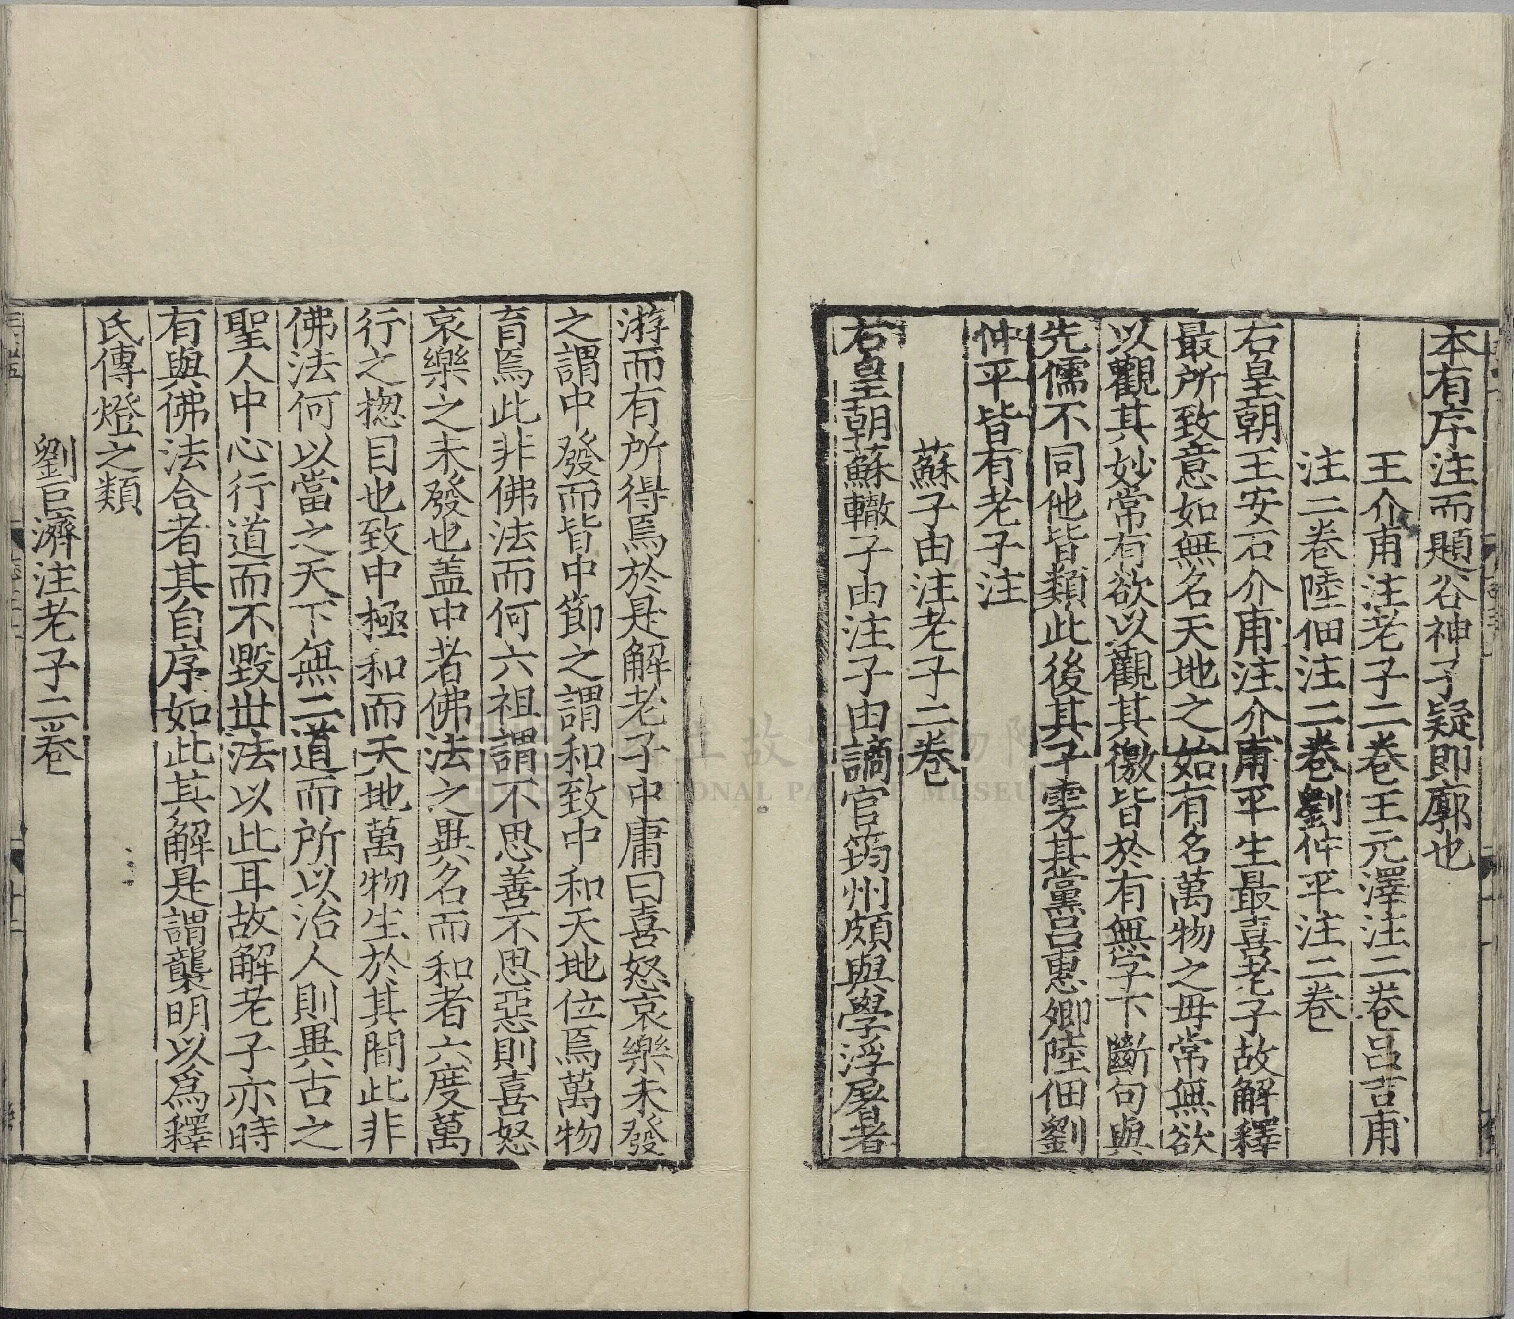 本有序注而題谷神子疑即廓也
王介甫注老子二卷王元澤注二卷吕吉甫
注二卷陸佃注二卷劉仲平注二卷
右皇朝王安石介甫注介甫平生最喜老子故解釋
最所致意如無名天地之始有名萬物之母常無欲
以觀其妙常有欲以觀其徼皆於有無字下斷句與
先儒不同他皆類此後其子雱其黨吕惠卿陸佃劉
仲平皆有老子注
蘇子由注老子二卷
右皇朝蘇轍子由注子由謫官筠州頗與學浮屠者
游而有所得焉於是解老子中庸曰喜怒哀樂未發
之謂中發而皆中節之謂和致中和天地位焉萬物
育焉此非佛法而何六祖謂不思善不思惡則喜怒
哀樂之未發也盖中者佛法之異名而和者六度萬
行之揔目也致中極和而天地萬物生於其間此非
佛法何以當之天下無二道而所以治人則異古之
聖人中心行道而不毀丗法以此耳故解老子亦時
有與佛法合者其自序如此其解是謂襲明以爲釋
氏傳燈之類
劉巨濟注老子二卷
國立故宮博物院
NATIONAL PALACE MUSEUM